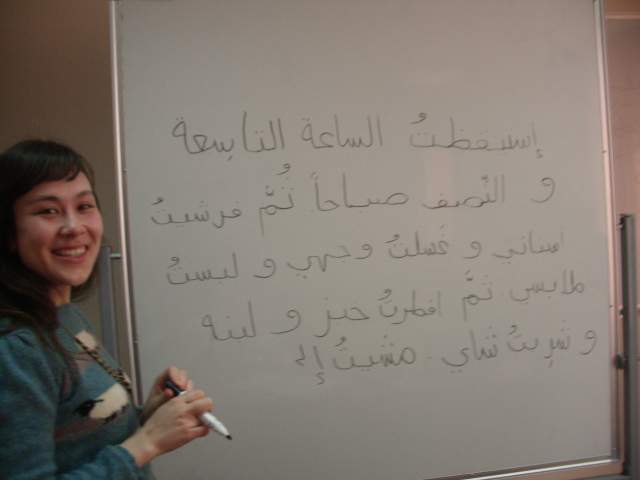 إستقظتُ الساعة التاسعة
و النّصف صباحاً. ثُمَّ فرشيتُ
اسناني و غَسلتُ وجهي و لبستُ
ملابسي ثمَّ افطرتُ خبز و لبنه
و شَرِبتُ شاي. مشيتُ إلى